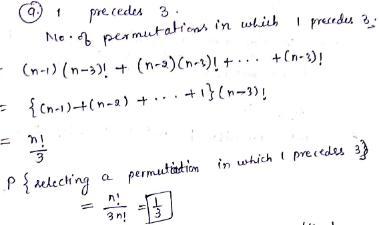 9. 1 precedes 3.
No. of permutations in which 1 precedes 3:
(n-1)(n-3)! + (n-2)(n-3)! + ... + (n-3)!
= {(n-1)+(n-2) + ... + 1}(n-3)!
= n!/3
P{selecting a permutation in which 1 precedes 3}
= n!/3n! = 1/3